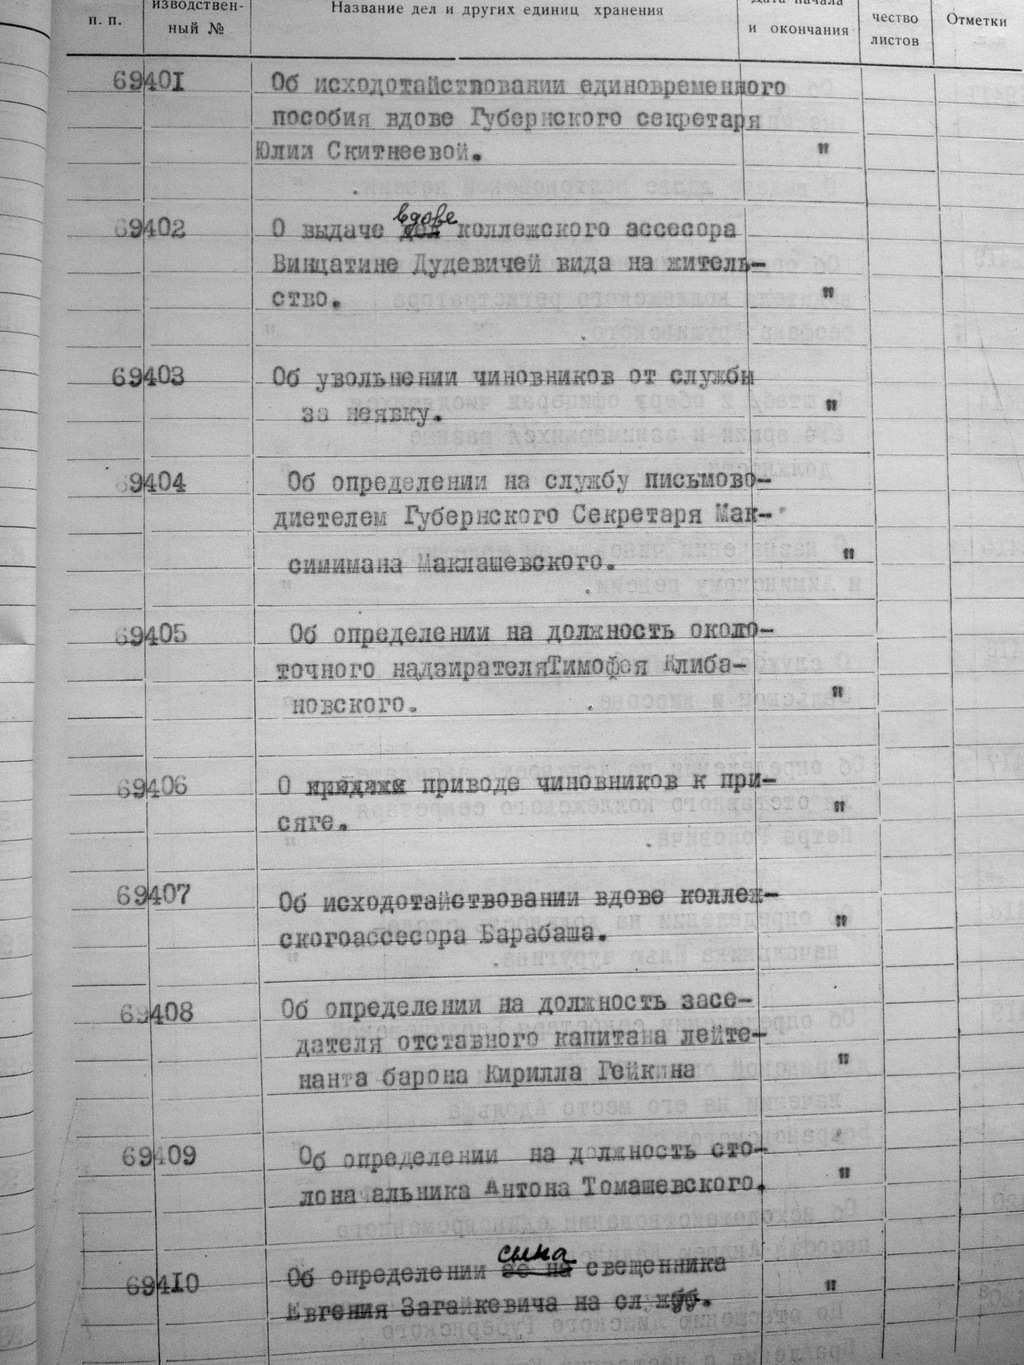 п. п.
изводствен-
ный №
Название дел и других единиц хранения
Дата начала
и окончания
чество
листов
Отметки
69401
Об исходотайствовании единовременного
пособия вдове Губернского секретаря
Юлии Скитнеевой. "
69402
вдове
О выдаче коллежского ассесора
Винцатине Дудевичей вида на житель-
ство. "
69403
Об увольнении чиновников от службы
за неявку. "
69404
Об определении на службу письмово-
диетелем Губернского Секретаря Мак-
симимана Маклашевского. "
69405
Об определении на должность около-
точного надзирателяТимофея Клиба-
новского. "
69406
О приводе чиновников к при-
сяге. "
69407
Об исходотайствовании вдове коллеж-
скогоассесора Барабаша. "
69408
Об определении на должность засе-
дателя отставного капитана лейте-
нанта барона Кирилла Гейкина "
69409
Об определении на должность сто-
лона альника Антона Томашевского. "
69410
сына
Об определении свещенника
Евгения Загайкевича на сл "